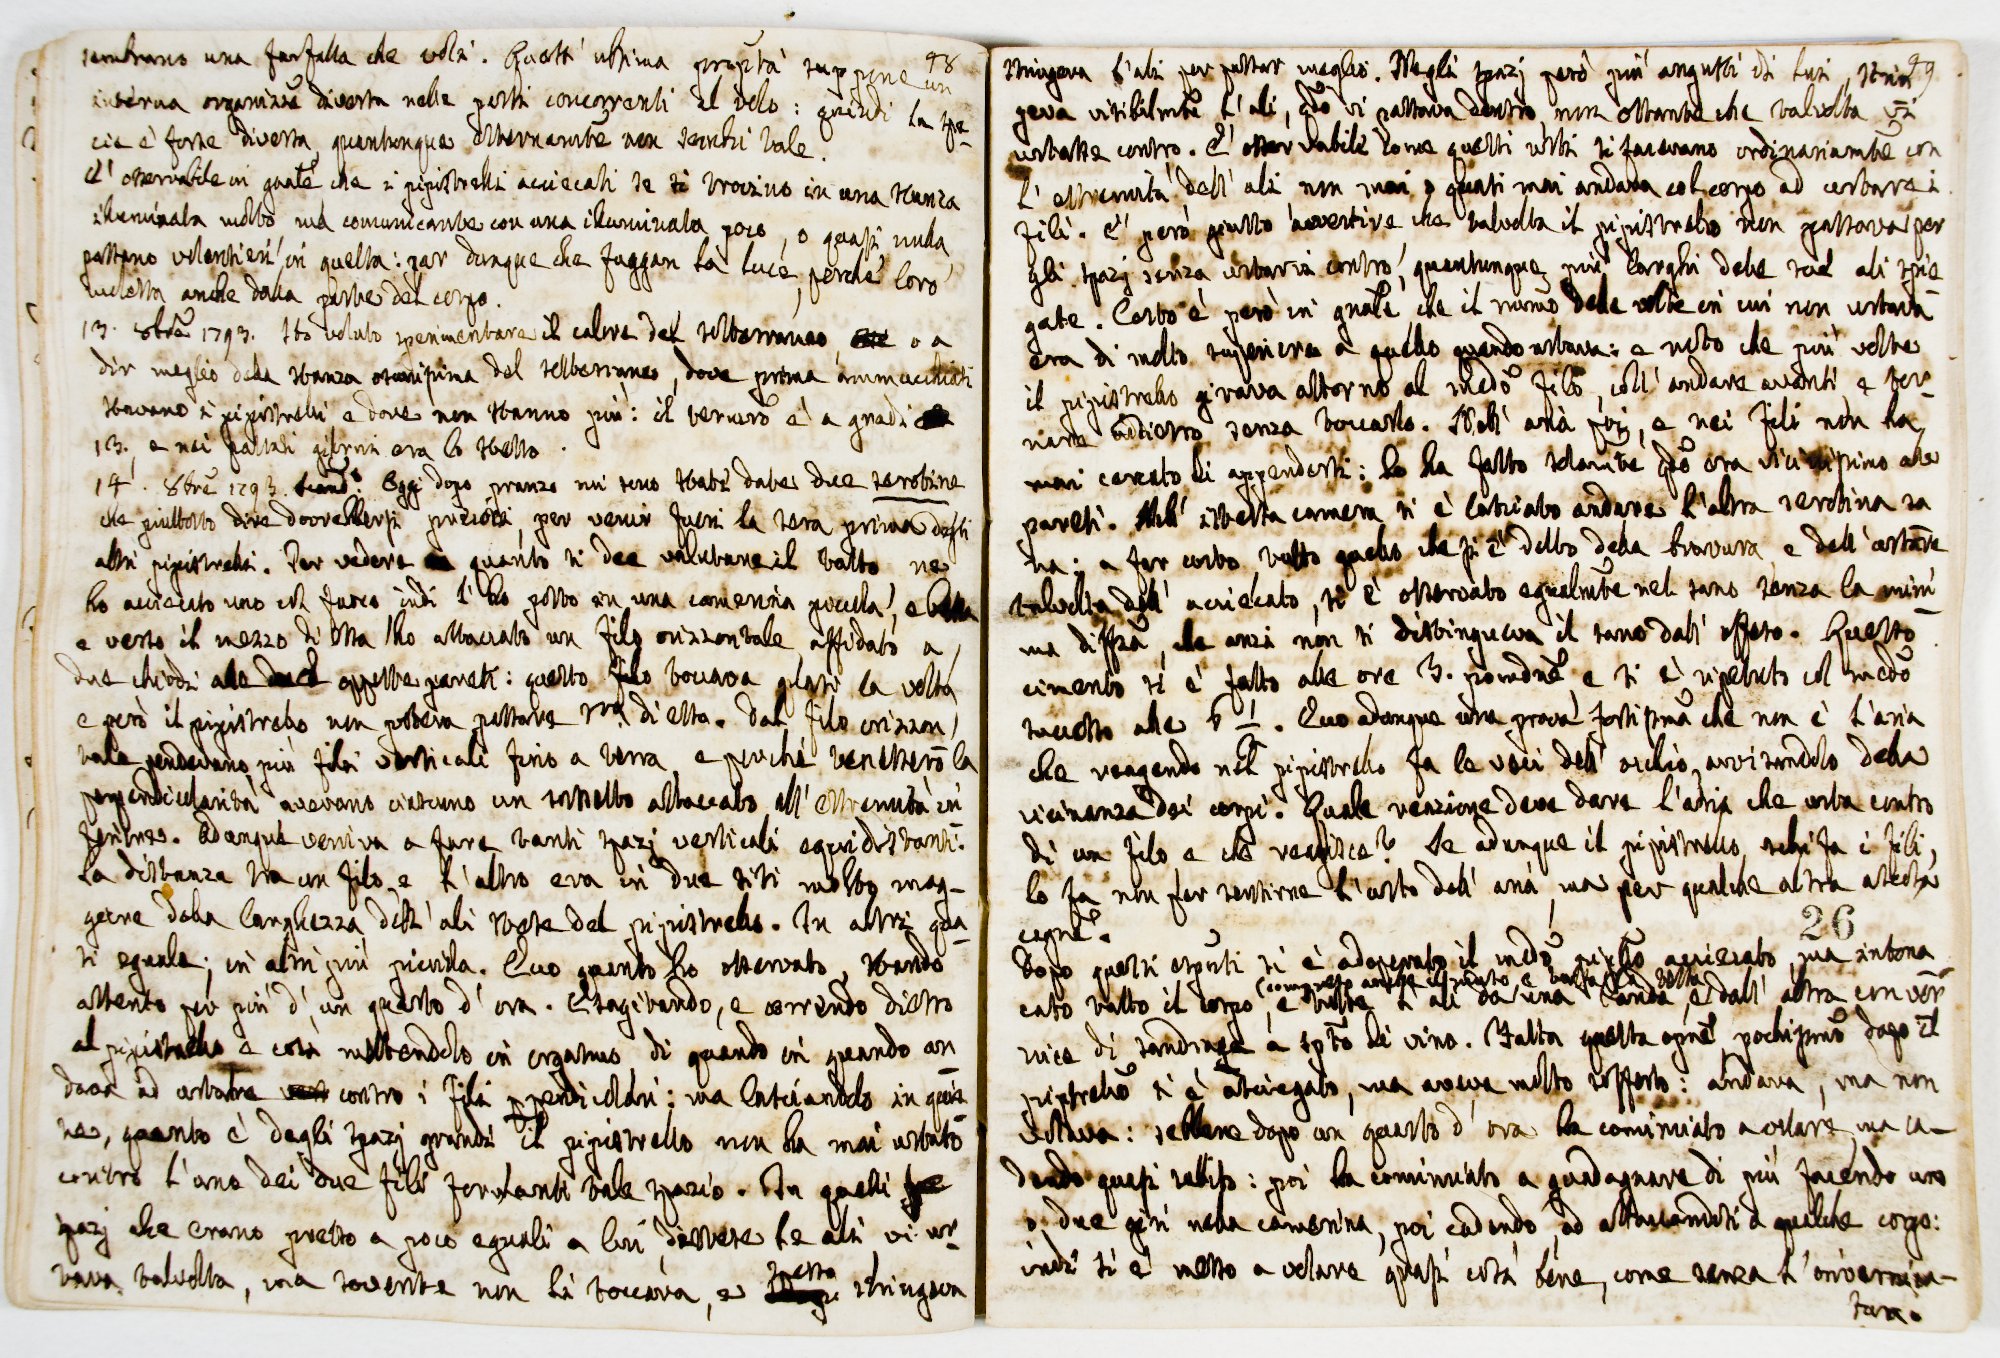 48
sembrano una farfalla che voli. Quest' ultima propità suppone un
interna organizze diversa nelle parti concorrenti al volo: quindi la spe-
cie è forse diversa quantunque esternamte non sembri tale.
E' osservabile in gnale che i pipistrelli acciecati se si trovino in una stanza
illuminata molto ma comunicante con una illuminata poco, o quasi nulla
passano volentieri in quella: par dunque che fuggan la luce, perchè loro
molesta anche dalla parte del corpo.
13. 8bre 1793. Ho voluto sperimentare il calore del sotterraneo o a
dir meglio della stanza oscurissima del sotterraneo, dove prima ammucchiati
stavano i pipistrelli e dove non stanno più: il termro è a gradi
13., e nei passati giorni era lo stesso.
14. 8bre 1793. Oggi dopo pranzo mi sono state date due serotine
che piuttosto dire dovrebbersi precoci per venir fuori la sera prima degli
altri pipistrelli. Per vedere quanto si dee valutare il tatto ne
ho acciecato uno col fuoco indi l' ho posto in una camerina piccola,
e verso il mezzo di essa ho attaccato un filo orizzontale affidato a
due chiodi alle opposte pareti: questo filo toccava quasi la volta
e però il pipistrello non poteva passare sopra di essa. Dal filo orizzon
tale pendevano più fili verticali fino a terra, e perchè tenessero la
perpendicolarità avevano ciascuno un sassetto attaccato all' estremità in
feriore. Adunque veniva a fare tanti spazj verticali equidistanti.
La distanza tra un filo e l' altro era in due siti molto mag-
giore della larghezza dell' ali stese del pipistrello. In altri qua-
si eguale; in altri più piccola. Ecco quanto ho osservato, stando
attento per più d' un quarto d' ora. Etagitando, e correndo dietro
al pipistrello e così mettendolo in orgasmo, di quando in quando an
dava ad urtare contro i fili ppendicolari: ma lasciandolo in quie
te, quanto è degli spazj grandi il pipistrello non ha mai urtato
contro l' uno dei due fili formanti tale spazio. In quelli
spazj che erano presso a poco eguali a lui distese le ali vi ur-
tava talvolta, ma sovente non li toccava, e spesso stringeva
49
stringeva l'ali per passar meglio. Negli spazj però più angusti di lui, strin
geva visibilmte l' ali, qdo vi passava dentro, non ostante che talvolta vi
urtasse contro. E' osservabile come questi urti si facevano ordinariamte con
l' estremità dell' ali non mai o quasi mai andava col corpo ad urtare i
fili. E' però giusto avvertire che talvolta il pipistrello non passava per
gli spazj senza urtarvi contro, quantunque più larghi delle sue ali spie
gate. Certo è però in gnale che il numo delle volte in cui non urtava
era di molto superiore a quello quando urtava: e noto che più volte
il pipistrello girava attorno al medo filo, coll' andare avanti e tor-
nare addietro senza toccarlo. Nell' aria poi, e nei fili non ha
mai cercato di appendersi: lo ha fatto solamte qdo era vicinissimo alle
pareti. Nell' istessa camera si è lasciato andare l'altra serotina sa
na: a far corto tutto quello che si è detto della bravura e dell' urtare
talvolta dell' acciecato, si è osservato egualmte nel sano senza la mini
ma diffza, che anzi non si distingueva il sano dall' offeso. Questo
cimento si è fatto alle ore 3. pomdne e si è ripetuto col medo
successo alle 6 1/2. Ecco adunque una prova fortissma che non è l'aria
che reagendo nel pipistrello fa le veci dell' occhio avvisandolo della
vicinanza dei corpi. Quale reazione deve dare l'aria che urta contro
di un filo e che reagisce? Se adunque il pipistrello schifa i fili,
lo fa non per sentirne l' urto dell' aria, ma per qualche altra ascosta
cagne.
26
Dopo questi espti si è adoperato il medo pipllo acciecato, ma intona
(compreso anche il muso, e tutta la testa)
cato tutto il corpo, e tutte l' ali da una banda e dall' altra con ver
nice di sandraca a spto di vino. Fatta questa opne pochissmo dopo il
pipistrello si è asciugato, ma aveva molto sofferto: andava, ma non
volava: sebbene dopo un quarto d' ora ha cominciato a volare, ma ca-
dendo quasi subito: poi ha cominciato a guadagnare di più facendo uno
o due giri nella camerina, poi cadendo, od attaccandosi a qualche corpo:
indi si è messo a volare quasi così bene, come senza l' invernicia-
tura.